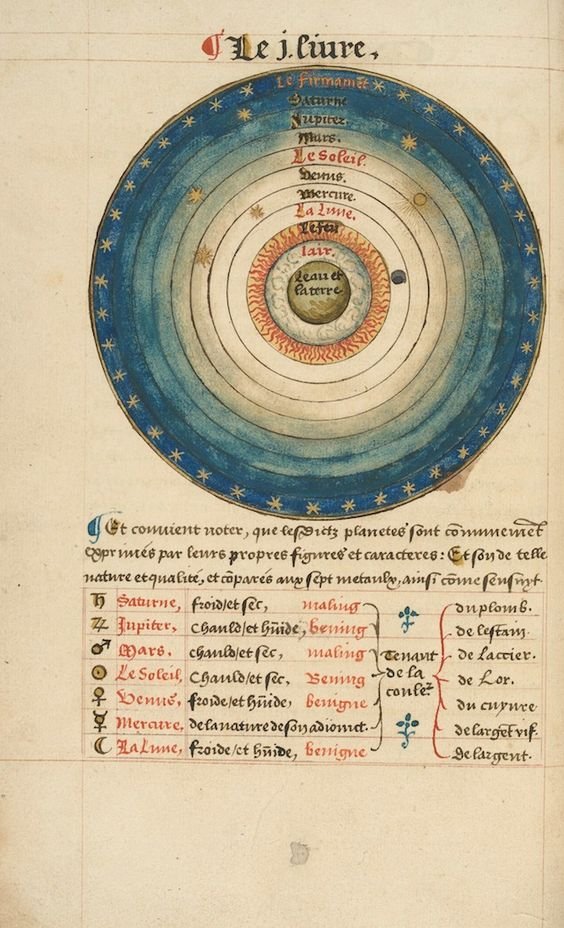 ¶ Le j. liure,
Le firmamēt
Saturne
Jupiter
Mars.
Le Soleil.
Venus.
Mercure.
La Lune.
Le feu
lair.
Leau et
la terre
¶ Et convient noter, que lesdictz planetes sont cōmunemēt
exprimés par leurs propres figures et caracteres: Et son de telle
nature et qualité, et cōparés aux sept metaulx, ainsi cōme sensuyt.
♄ Saturne, froid/et sec, maling du plomb.
♃ Jupiter, Chauld/et hūide, bening de lestain.
♂ Mars. chauld/et sec, maling de laccier.
☉ Le Soleil, Chauld/et sec, Bening de Lor.
♀ Venus, froide/et hūide, benigne du cuyure
☿ Mercure, de la nature de son adioinct. de largēt vif.
☾ La Lune, froide/et hūide, benigne de largent.
Tenant
de la
couler